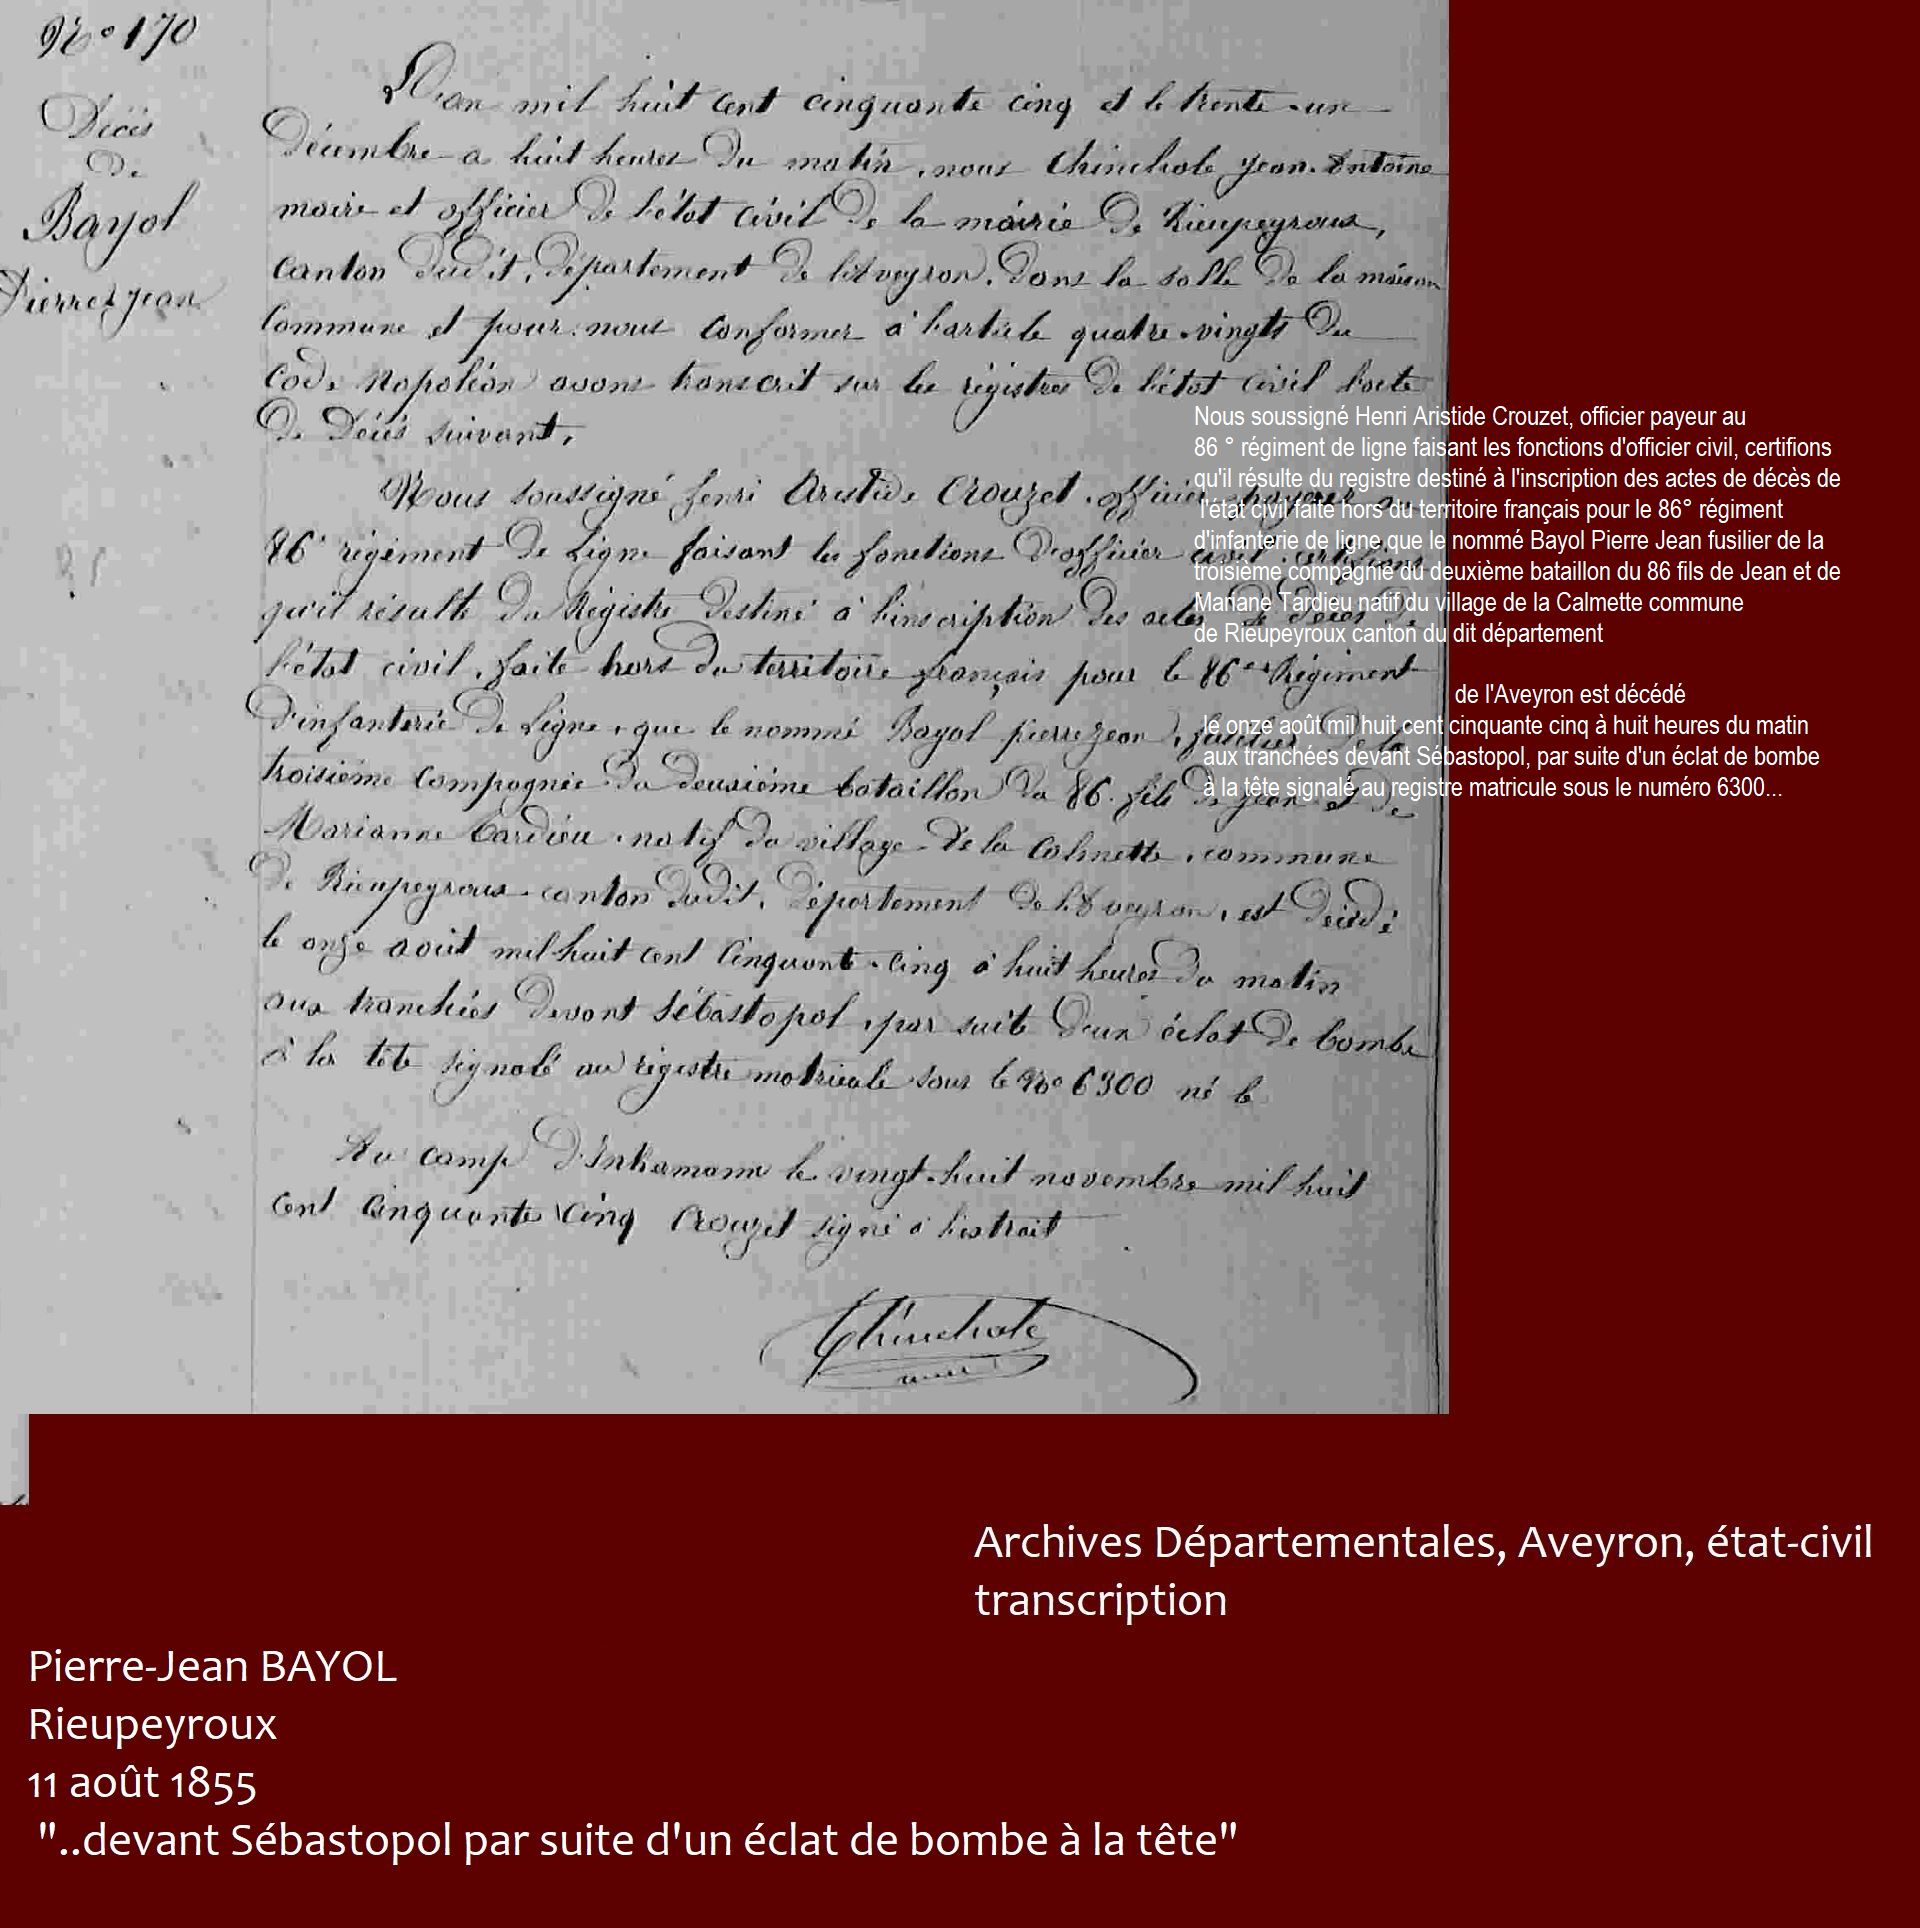 No 170
Décès
de
Bayol
Pierre jean
L'an mil huit cent cinquante cinq et le trente-un
Décembre a huit heures du matin, nous Chinchole Jean-Antoine
maire et officier de l'état civil de la mairie de Rieupeyroux,
Canton dudit, département de l'Aveyron, dans la salle de la maison
Commune et pour nous conformer à l'article quatre-vingts du
Code Napoléon avons transcrit sur les régistres de l'état civil l'acte
de Décés suivant,
Nous soussigné henri Aristide Crouzet, officier payeur au
86e régiment de Ligne faisant les fonctions d'officier civil, certifions
qu'il résulte du Régistre destiné à l'inscription des actes de décès de
l'état civil, faite hors du territoire français pour le 86e Régiment
d'infanterie de Ligne, que le nommé Bayol pierre jean, fusilier de la
troisième Compagnie du deuxième bataillon du 86. fils de jean et de
Marianne Tardieu, natif du village de la Calmette, commune
de Rieupeyroux canton dudit, département de l'Aveyron, est décédé
le onze aout mil huit cent Cinquante-cinq à huit heures du matin
aux tranchées devant Sébastopol, par suite d'un éclat de bombe
à la tête signalé au régistre matricule sous le No 6300 né le
Au camp d'Inkermann le vingt-huit novembre mil huit
cent Cinquante Cinq Crouzet signé à l'extrait
Chinchole
maire
Nous soussigné Henri Aristide Crouzet, officier payeur au
86 ° régiment de ligne faisant les fonctions d'officier civil, certifions
qu'il résulte du registre destiné à l'inscription des actes de décès de
l'état civil faite hors du territoire français pour le 86° régiment
d'infanterie de ligne,que le nommé Bayol Pierre Jean fusilier de la
troisième compagnie du deuxième bataillon du 86 fils de Jean et de
Mariane Tardieu natif du village de la Calmette commune
de Rieupeyroux canton du dit département
de l'Aveyron est décédé
le onze août mil huit cent cinquante cinq à huit heures du matin
aux tranchées devant Sébastopol, par suite d'un éclat de bombe
à la tête signalé au registre matricule sous le numéro 6300...
Archives Départementales, Aveyron, état-civil
transcription
Pierre-Jean BAYOL
Rieupeyroux
11 août 1855
"..devant Sébastopol par suite d'un éclat de bombe à la tête"